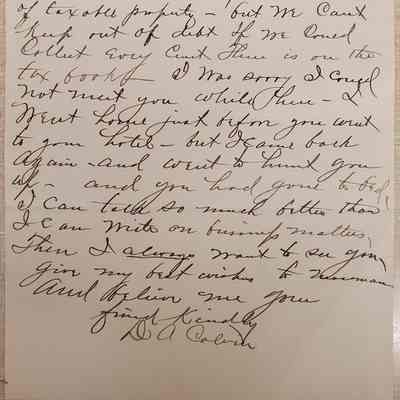 of taxable property - but we cant
keep out of debt if we could
collect every cent there is on the
tax books - I was sorry I could
not meet you while there - I
went home just before you went
to your hotel - but I came back
again - and went to hunt you
up - and you had gone to bed,
I can talk so much better than
I can write on business matters,
Then I always want to see you,
give my best wishes to
And believe me your
friend Kindly
D A Colvin